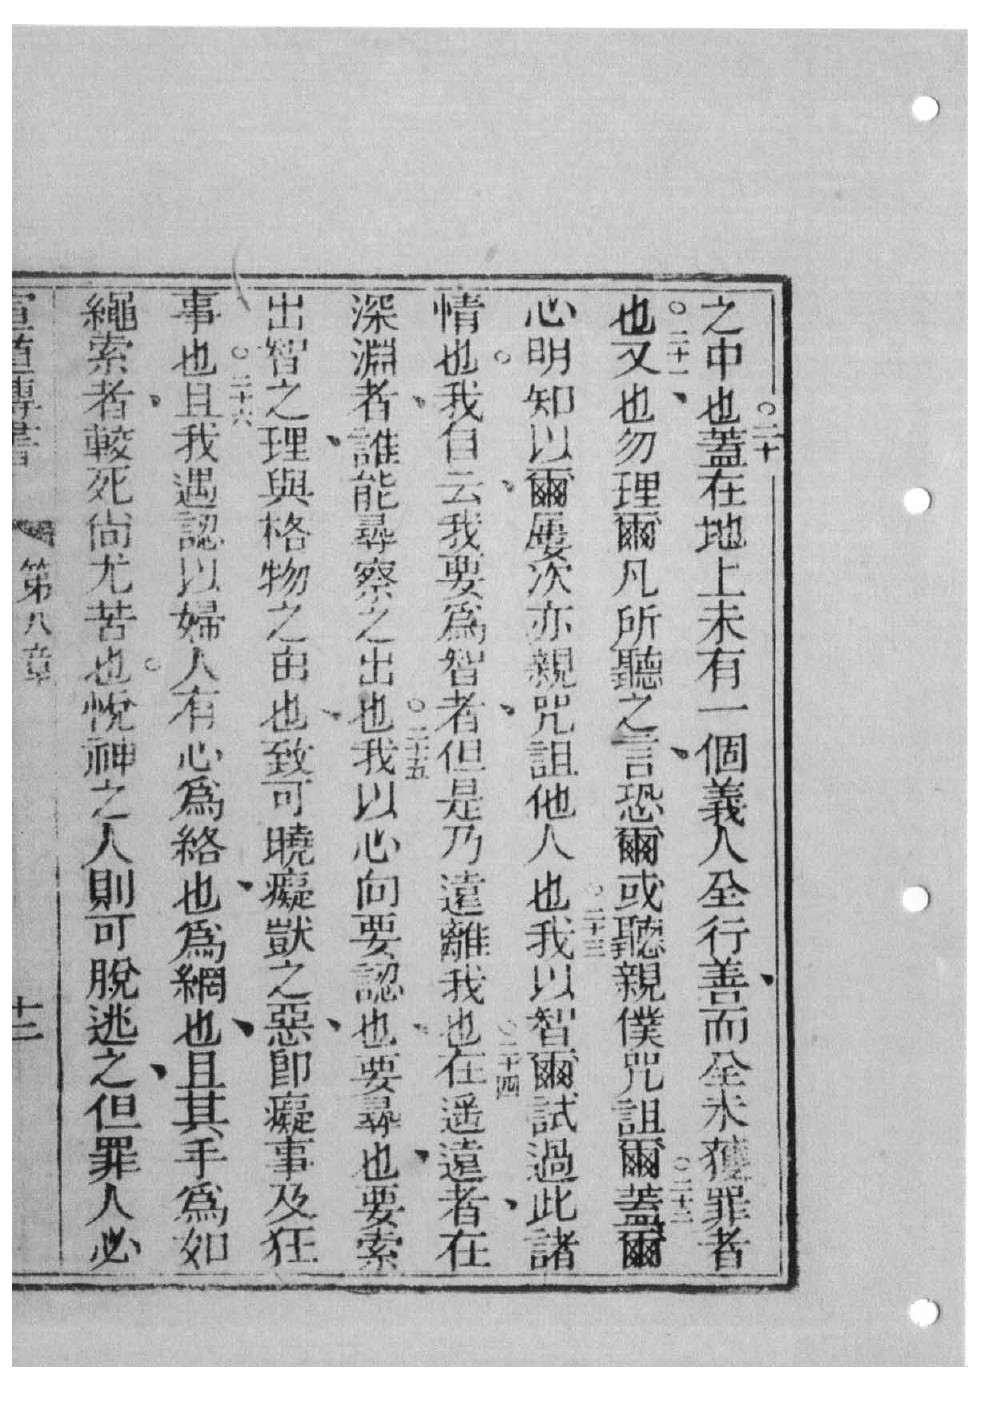 之中也○二十蓋在地上未有一個義人全行善而全未獲罪者
也○二十一又也勿理爾凡所聽之言恐爾或聽親僕咒詛爾○二十二蓋爾
心明知以爾屢次亦親咒詛他人也○二十三我以智爾試過此諸
情也我自云我要為智者但是乃遠離我也○二十四在遥遠者在
深淵者誰能尋察之出也○二十五我以心向要認也要尋也要索
出智之理與格物之由也致可曉癡獃之惡卽癡事及狂
事也○二十六且我遇認以婦人有心為絡也為網也且其手為如
繩索者較死尙尤苦也悅神之人則可脫逃之但罪人必
宣道傳書
第八章
十二